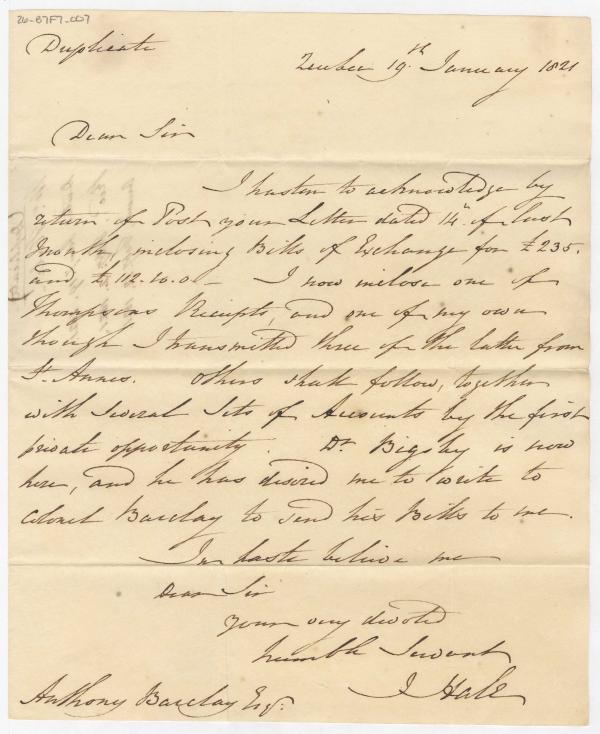 26-B7F7-007
Duplicate
Quebec 19th January 1821
Dear Sir
I hasten to acknowledge by
return of Post your Letter dated 14th of last
Month, inclosing Bills of Exchange for £235.
and £112.10.0 — I now inclose one of
Thompsons Receipts, and one of my own
though I transmitted three of the latter from
St. Annes. Others shall follow, together
with several Sets of Accounts by the first
private opportunity. Dr Bigsby is now
here, and he has desired me to write to
Colonel Barclay to send his Bills to me.
In haste believe me
Dear Sir
your very devoted
humble Servant
J Hale
Anthony Barclay Esqr.